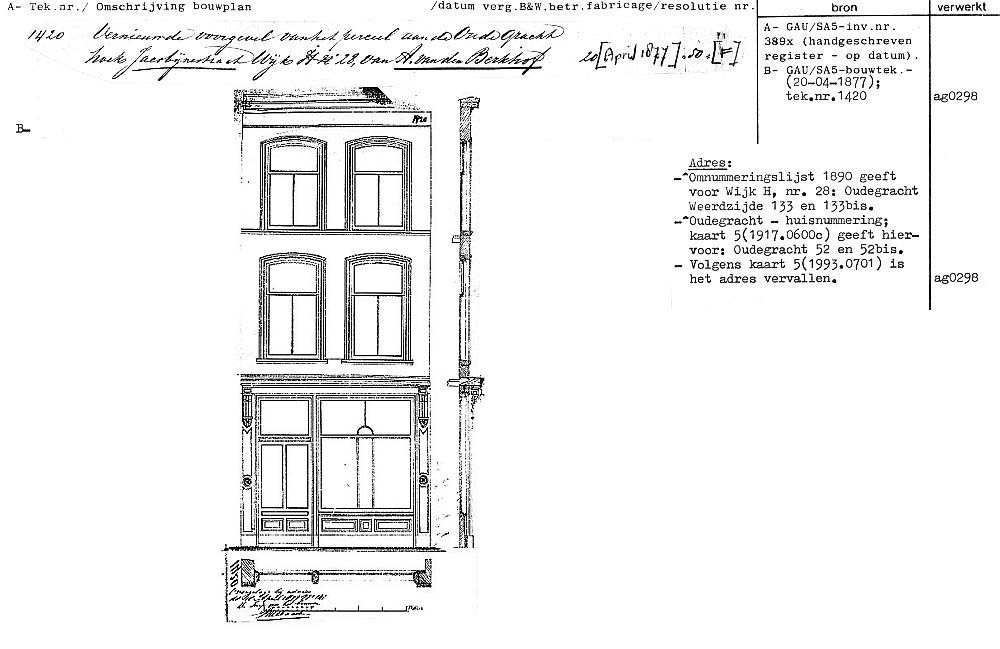 A- Tek.nr./ Omschrijving bouwplan /datum verg.B&W.betr.fabricage/resolutie nr. bron verwerkt
1420 Vernieuwde voorgevel van het perceel aan de Oude Gracht
hoek Jacobijnestraat Wijk H nº 28, van A. van den Berkhof 20 [April 1877]
A- GAU/SA5-inv.nr.
389x (handgeschreven
register - op datum).
B- GAU/SA5-bouwtek.-
(20-04-1877);
tek.nr.1420 ag0298
B-
1420
Adres:
-^Omnummeringslijst 1890 geeft
voor Wijk H, nr. 28: Oudegracht
Weerdzijde 133 en 133bis.
-^Oudegracht - huisnummering;
kaart 5(1917.0600c) geeft hier-
voor: Oudegracht 52 en 52bis.
- Volgens kaart 5(1993.0701) is
het adres vervallen. ag0298